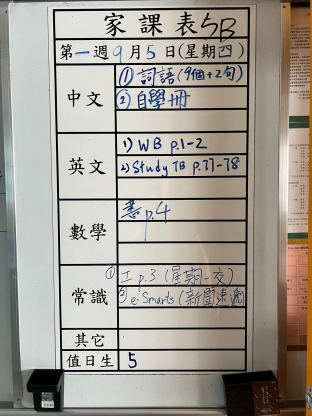 家課表5B
第一週9月5日(星期四)
中文
① 詞語(9個+2句)
② 自學冊
英文
1) WB p.1-2
2) Study TB p.77-78
數學
書p.4
常識
① 工p.3 (星期一交)
② e-Smarts (新聞速遞)
其它
值日生 5